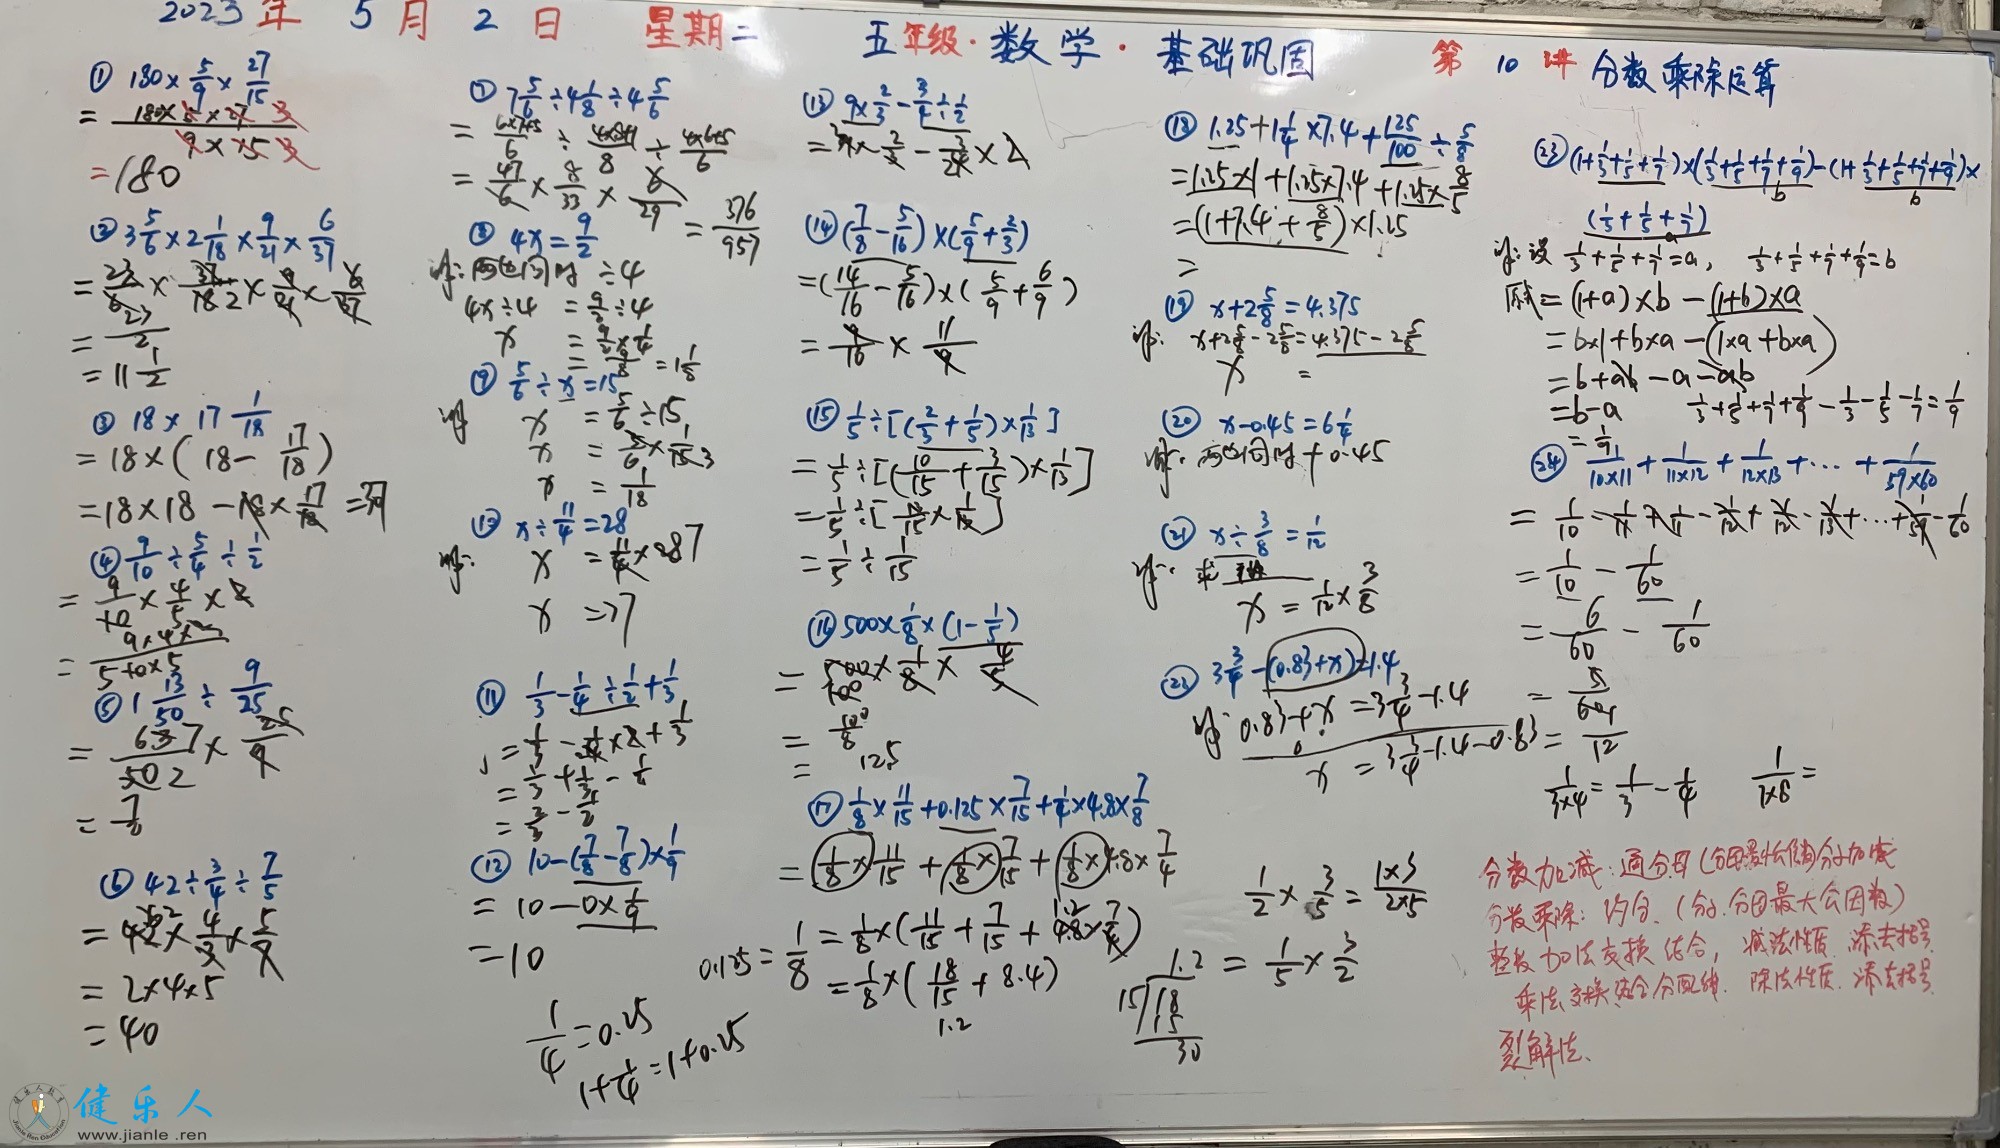 2023年 5月 2日 星期二 五年级·数学·基础巩固 第10讲 分数乘除运算
① 180×5/9×27/15
=180×5×27/9×15
=180
② 3 5/6×2 1/18×9/21×6/37
=23/6×37/18×9/21×6/37
=23/2
=11 1/2
③ 18×17 1/18
=18×(18-17/18)
=18×18-18×17/18
④ 9/10÷5/4÷1/2
=9/10×4/5×2
=9×4×2/10×5
⑤ 1 13/50÷9/25
=63/50×25/9
=7/2
⑥ 42÷3/4÷7/5
=42×4/3×5/7
=2×4×5
=40
⑦ 7 5/6÷4 1/8÷4 5/6
=6×7+5/6÷4×8+1/8÷4×6+5/6
=47/6×8/33×6/29=376/957
⑧ 4x=9/2
解:两边同时÷4
4x÷4=9/2÷4
x=9/2×1/4
=9/8=1 1/8
⑨ 5/6÷x=15
解 x=5/6÷15
x=5/6×1/15
x=1/18
x÷11/4=28
解: x=11/4×28 7
x=77
⑪ 1/3-1/4÷1/2+1/3
=1/3-1/4×2+1/3
=1/3+1/3-1/2
=2/3-1/2
⑫ 10-(7/8-7/8)×1/9
=10-0×1/9
=10
1/4=0.25
1+1/4=1+0.25
⑬ 9×2/3-3/4÷1/2
=9×2/3-3/4×2
⑭ (7/8-5/16)×(5/9+2/3)
=(14/16-5/16)×(5/9+6/9)
=9/16×11/9
⑮ 1/5÷[(2/3+1/5)×1/13]
=1/5÷[(10/15+3/15)×1/13]
=1/5÷[13/15×1/13]
=1/5÷1/15
⑯ 500×1/8×(1-1/5)
=500×1/8×4/5
=100/8
= 12.5
⑰ 1/8×11/15+0.125×7/15+1/4×4.8×7/8
=1/8×11/15+1/8×7/15+1/8×4.8×7/4
0.125=1/8
=1/8×(11/15+7/15+4.8×7/4)
=1/8×(18/15+8.4)
1.2
⑱ 1.25+1 1/4×7.4+125/100÷5/8
=1.25×1+1.25×7.4+1.25×8/5
=(1+7.4+8/5)×1.25
=
⑲ x+2 5/8=4.375
解: x+2 5/8-2 5/8=4.375-2 5/8
x =
⑳ x-0.45=6 1/4
解:两边同时+0.45
㉑ x÷3/8=1/12
x=1/12×3/8
㉒ 3 3/4-(0.83+x)=1.4
解 0.83+x=3 3/4-1.4
x=3 3/4-1.4-0.83
1/2×3/5=1×3/2×5
=1/5×3/2
1.2
15 18
15
30
㉓ (1+1/3+1/5+1/7)×(1/3+1/5+1/7+1/9)-(1+1/3+1/5+1/7+1/9)×
(1/3+1/5+1/7)
解:设1/3+1/5+1/7=a, 1/3+1/5+1/7+1/9=b
原式=(1+a)×b-(1+b)×a
=b×1+b×a-(1×a+b×a)
=b+ab-a-ab
=b-a 1/3+1/5+1/7+1/9-1/3-1/5-1/7=1/9
=1/9
㉔ 1/10×11+1/11×12+1/12×13+…+1/59×60
=1/10-1/11+1/11-1/12+1/12-1/13+…+1/59-1/60
=1/10-1/60
=6/60-1/60
=5/60
=1/12
1/3×4=1/3-1/4 1/7×8=
分数加减:通分母(分母最小公倍)分子加减
分数乘除:约分.(分子.分母最大公因数)
整数加法交换 结合, 减法性质. 添去括号
乘法交换 结合 分配律. 除法性质. 添去括号.
裂解法.
健乐人
www.jianle.ren